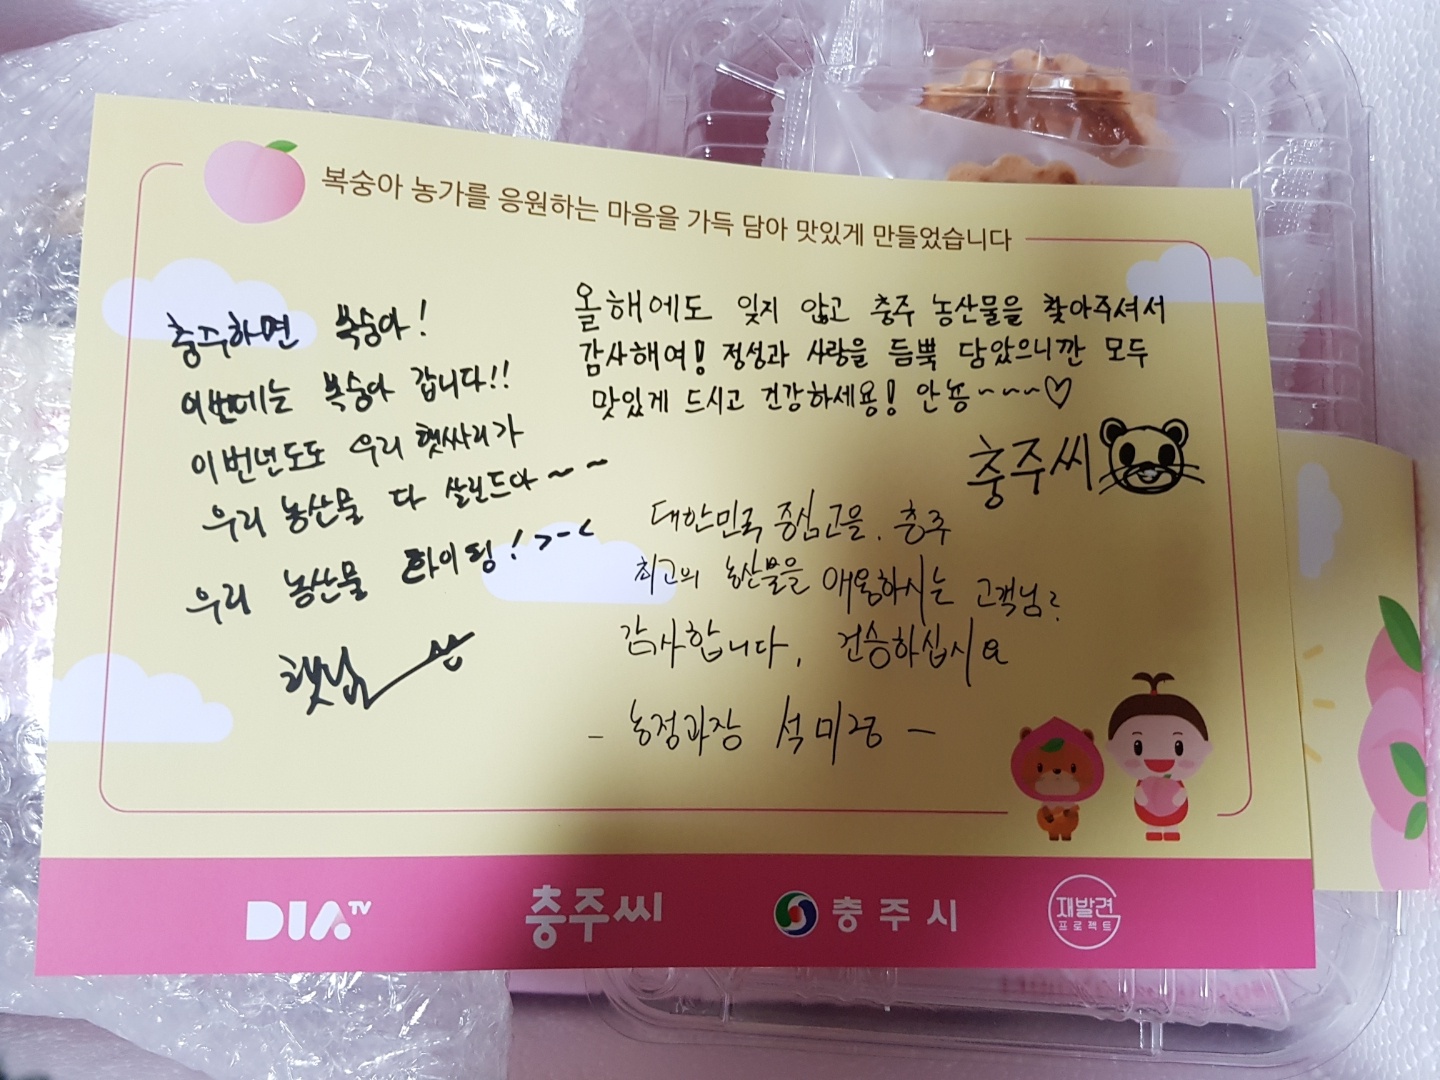 복숭아 농가를 응원하는 마음을 가득 담아 맛있게 만들었습니다
충주하면 복숭아!
이번에는 복숭아 갑니다!!
이번년도도 우리 햇싸리가
우리 농산물 다 살린드아~~
우리 농산물 화이팅! >-<
햇님
올해에도 잊지 않고 충주 농산물을 찾아주셔서
감사해여! 정성과 사랑을 듬뿍 담았으니깐 모두
맛있게 드시고 건강하세용! 안뇽~~~♡
충주씨
대한민국 중심고을. 충주
최고의 농산물을 애용하시는 고객님?
감사합니다, 건승하십시요
- 농정과장 석미경 -
DIA TV
충주씨
충주시
재발견
프로젝트